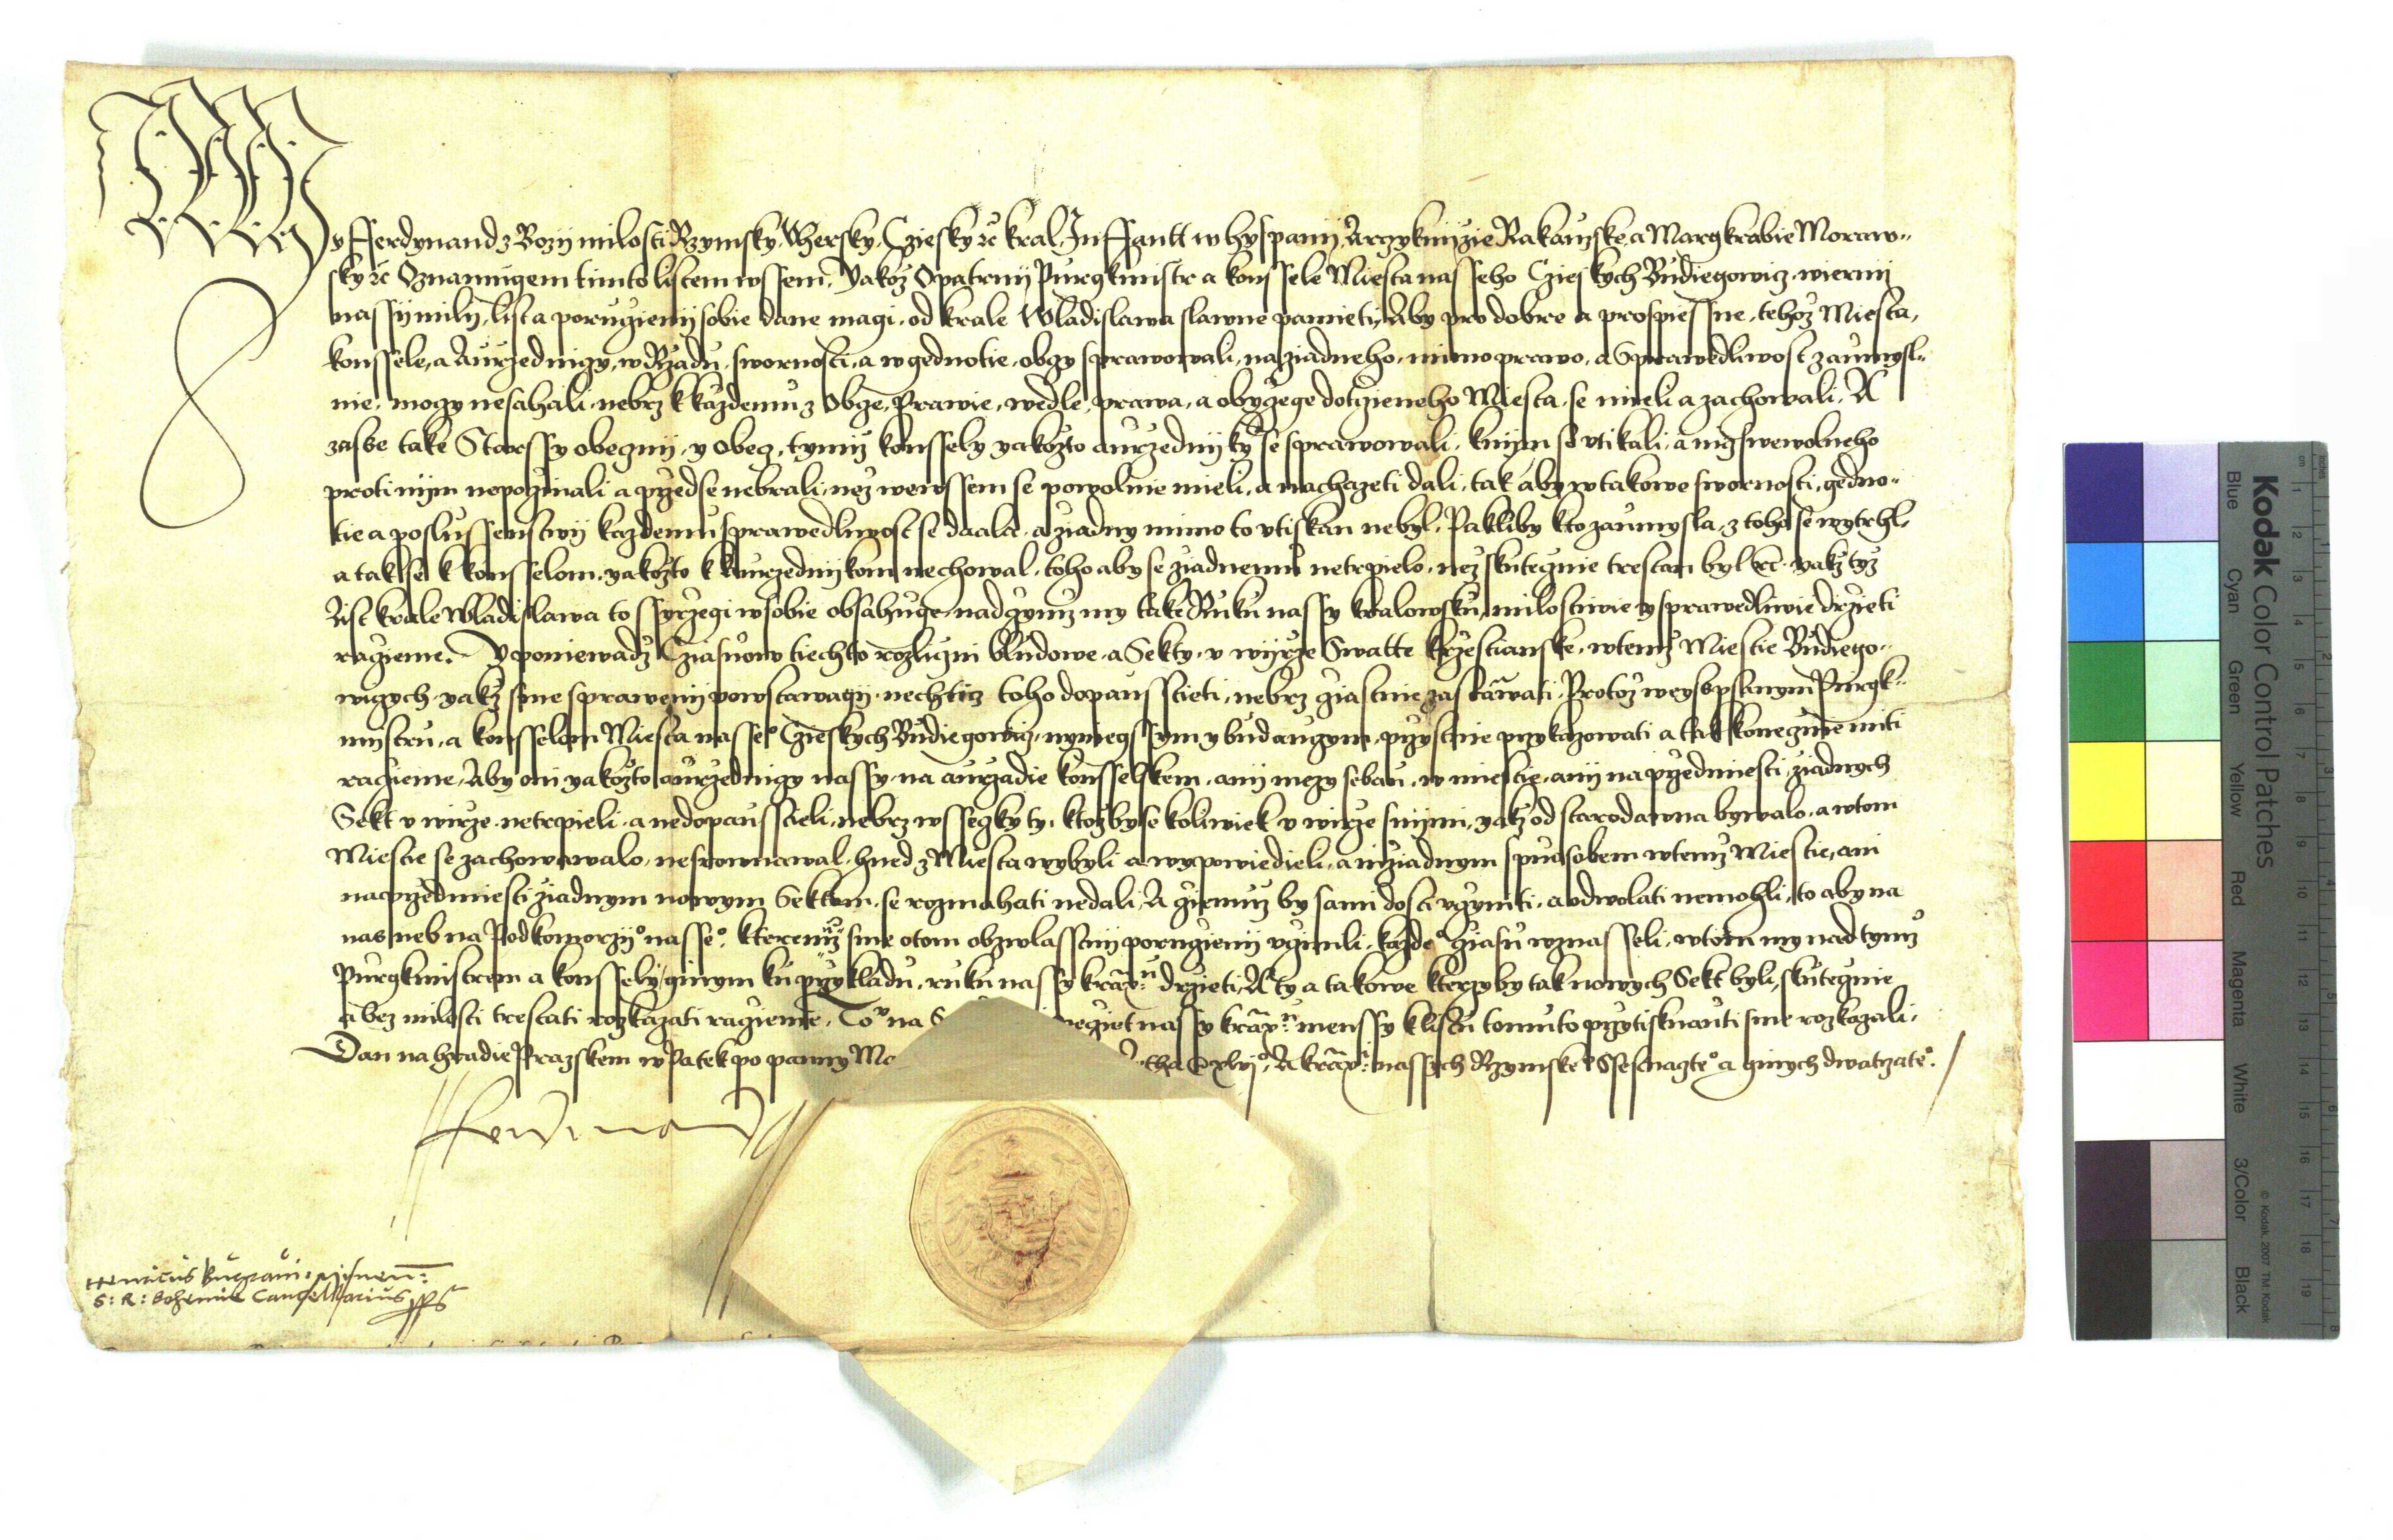 My Fferdynand z Bozij milosti Rzymsky, Vhersky, Cziesky ꝛc kral, Inffantt w hyspanij, Arzyknijzie Rakauzske, a Margkrabie Moraw„
sky ꝛc Oznamugem timto listem wssem, Yakoz Opatrnij Purgkmistr a konssele Miesta nasseho Czieskych Budiegowicz, wiernij
nassij milij, list a porugienij sobie dane magi, od krale Wladislawa slawne pamieti, Aby pro dobre a prospiessne, tehoz Miesta,
konssele, a Aurzednigy, w Rzadu, swornosti, a w gednotie, obgy sprawowali, na ziadneho, mimo prawo, a Sprawedliwost zaumysl„
nie, mogy nesahali, nebrz k kazdemu z Obge, Prawie, wedle, prawa, a obygege dotgieneho Miesta, se mieli a zachowali, A
zasbe take Starssy obegnij, y Obeg, tymij konssely yakozto aurzednijky se sprawowali, knijm se vtikali, a nigswewolneho
proti nijm nepoginali a przed se nebrali, nez wewssem se powolnie mieli, a nachazeti dali, tak aby w takowe swornosti, gedno„
tie a poslussenstwij kazdemu sprawedliwost se daala, a ziadny mimo to vtiskan nebyl, Pakliby kto zaumysla, z toho se wytrhl,
a tak se k konsselom, yakozto k Aurzednijkom nechowal, toho aby se ziadnemu netrpielo, nez skutegnie trestan byl ꝛc, yakz tyz
List krale Wladislawa to ssyrzegi w sobie obsahuge, nad gymz my take Ruku nassy kralowsku, milostiwie y sprawedliwie drzieti
ragieme. Y poniewadz Cziasuow tiechto rozligni bludowe, a Sekty, v wijrze Swatte krzestianske, w temz Miestie Budiego„
wigych, yakz sme sprawenij powstawagij, nechtiz toho dopaussieti, nebrz giastnie zastawati, Protoz weyss psanym Purgk„
mistru, a konsselom Miesta nasseo Czieskych Budiegowicz, nyniegssym y budaugym, przystnie przykazowati a tak konegnie miti
ragieme, Aby oni yakozto aurzednigy nassy, na aurzadie konsselskem, anij mezy sebau, w miestie, anij na przedmiesti, ziadnych
Sekt v wirze, netrpieli, a nedopaussieli, nebrz wssegky ty, ktoz by se koliwiek v wirze snijmi, yakz od starodawna bywalo, a wtom
Miestie se zachowawalo, nesrownawal, hned z Miesta wybyli a wypowiedieli, a niziadnym spuosobem wtemz Miestie, ani
na przedmiesti ziadnym nowym Sektam, se rozmahati nedali, A giemuz by sami dosti vgyniti, a odwolati nemohli, to aby na
nas neb na Podkomorzijo nasseo, kteremuz sme otom obzwlasstnij porugienij vginili, kazdeo giasu wznasseli, wtom my nad tymz
Purgkmistrem a konssely, ginym ku przykladu, ruku nassy kraow: drzieti, A ty a takowe kterzyby tak nowych Sekt byli, skutegnie
a bez milosti trestati rozkazati ragieme, Too na S egiet nassy kraow: menssy k listu tomuto przytisknauti sme rozkazali,
Dan na hradie Prazskem w Patek po panny Ma tha xlvjo, A kraow: nassych Rzymskeo Ssestnagteo a ginych dwatzateo.
Ferdinand
Henricus Burgraui: Misnen:
S: R: Bohemie Cancellarius sst
Kodak Color Control Patches
Blue Cyan Green Yellow Red Magenta White 3/Color Black
© Kodak, 2007 TM: Kodak
inches 1 2 3 4 5 6 7 8
cm 1 2 3 4 5 6 7 8 9 10 11 12 13 14 15 16 17 18 19